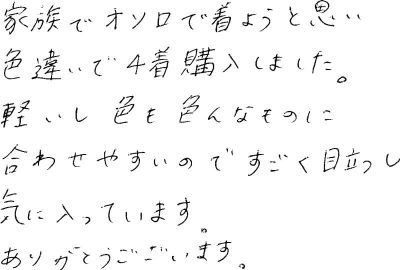 家族でオソロで着ようと思い
色違いで4着購入しました。
軽いし色も色んなものに
合わせやすいのですごく目立つし
気に入っています。
ありがとうございます。